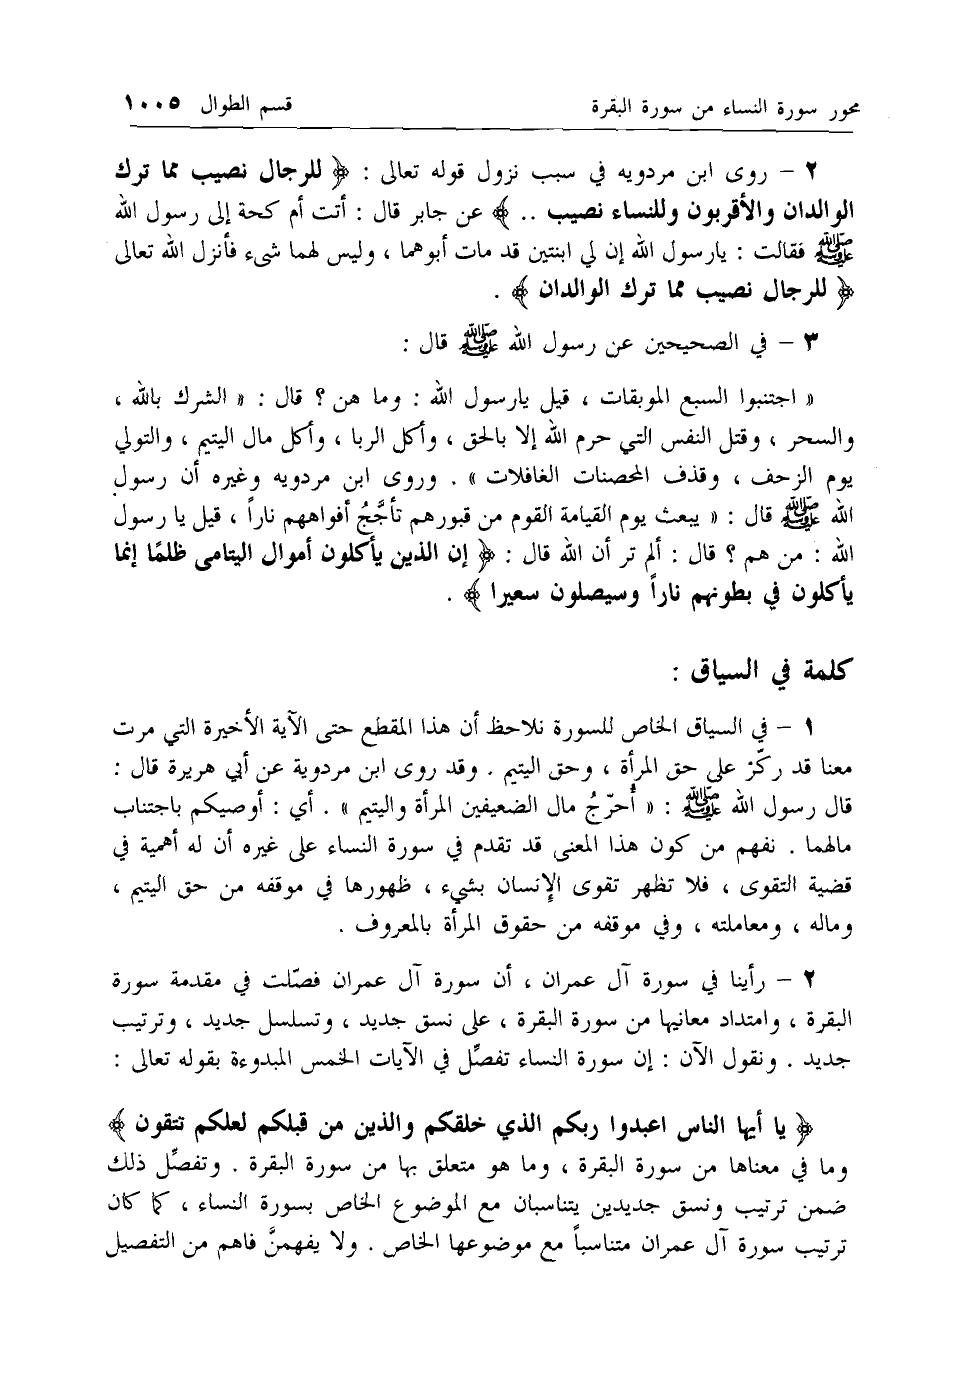 محور سورة النساء من سورة البقرة قسم الطوال ١٠٠٥
٢ – روى ابن مردويه في سبب نزول قوله تعالى : ﴿ للرجال نصيب مما ترك
الوالدان والأقربون وللنساء نصيب .. ﴾ عن جابر قال : أتت أم كحة إلى رسول الله
ﷺ فقالت : يارسول الله إن لي ابنتين قد مات أبوهما ، وليس لهما شىء فأنزل الله تعالى
﴿ للرجال نصيب مما ترك الوالدان ﴾ .
٣ – في الصحيحين عن رسول الله ﷺ قال :
« اجتنبوا السبع الموبقات ، قيل يارسول الله : وما هن ؟ قال : « الشرك بالله ،
والسحر ، وقتل النفس التي حرم الله إلا بالحق ، وأكل الربا ، وأكل مال اليتيم ، والتولي
يوم الزحف ، وقذف المحصنات الغافلات » . وروى ابن مردويه وغيره أن رسول
الله ﷺ قال : « يبعث يوم القيامة القوم من قبورهم تأجَّجُ أفواههم ناراً ، قيل يا رسول
الله : من هم ؟ قال : ألم تر أن الله قال : ﴿ إن الذين يأكلون أموال اليتامى ظلمًا إنما
يأكلون في بطونهم ناراً وسيصلون سعيرا ﴾ .
كلمة في السياق :
١ – في السياق الخاص للسورة نلاحظ أن هذا المقطع حتى الآية الأخيرة التي مرت
معنا قد ركّز على حق المرأة ، وحق اليتيم . وقد روى ابن مردوية عن أبي هريرة قال :
قال رسول الله ﷺ : « أُحرّجُ مال الضعيفين المرأة واليتيم » . أي : أوصيكم باجتناب
مالهما . نفهم من كون هذا المعنى قد تقدم في سورة النساء على غيره أن له أهمية في
قضية التقوى ، فلا تظهر تقوى الإنسان بشيء ، ظهورها في موقفه من حق اليتيم ،
وماله ، ومعاملته ، وفي موقفه من حقوق المرأة بالمعروف .
٢ – رأينا في سورة آل عمران ، أن سورة آل عمران فصّلت في مقدمة سورة
البقرة ، وامتداد معانيها من سورة البقرة ، على نسق جديد ، وتسلسل جديد ، وترتيب
جديد . ونقول الآن : إن سورة النساء تفصِّل في الآيات الخمس المبدوءة بقوله تعالى :
﴿ يا أيها الناس اعبدوا ربكم الذي خلقكم والذين من قبلكم لعلكم تتقون ﴾
وما في معناها من سورة البقرة ، وما هو متعلق بها من سورة البقرة . وتفصِّل ذلك
ضمن ترتيب ونسق جديدين يتناسبان مع الموضوع الخاص بسورة النساء ، كما كان
ترتيب سورة آل عمران متناسباً مع موضوعها الخاص . ولا يفهمنَّ فاهم من التفصيل